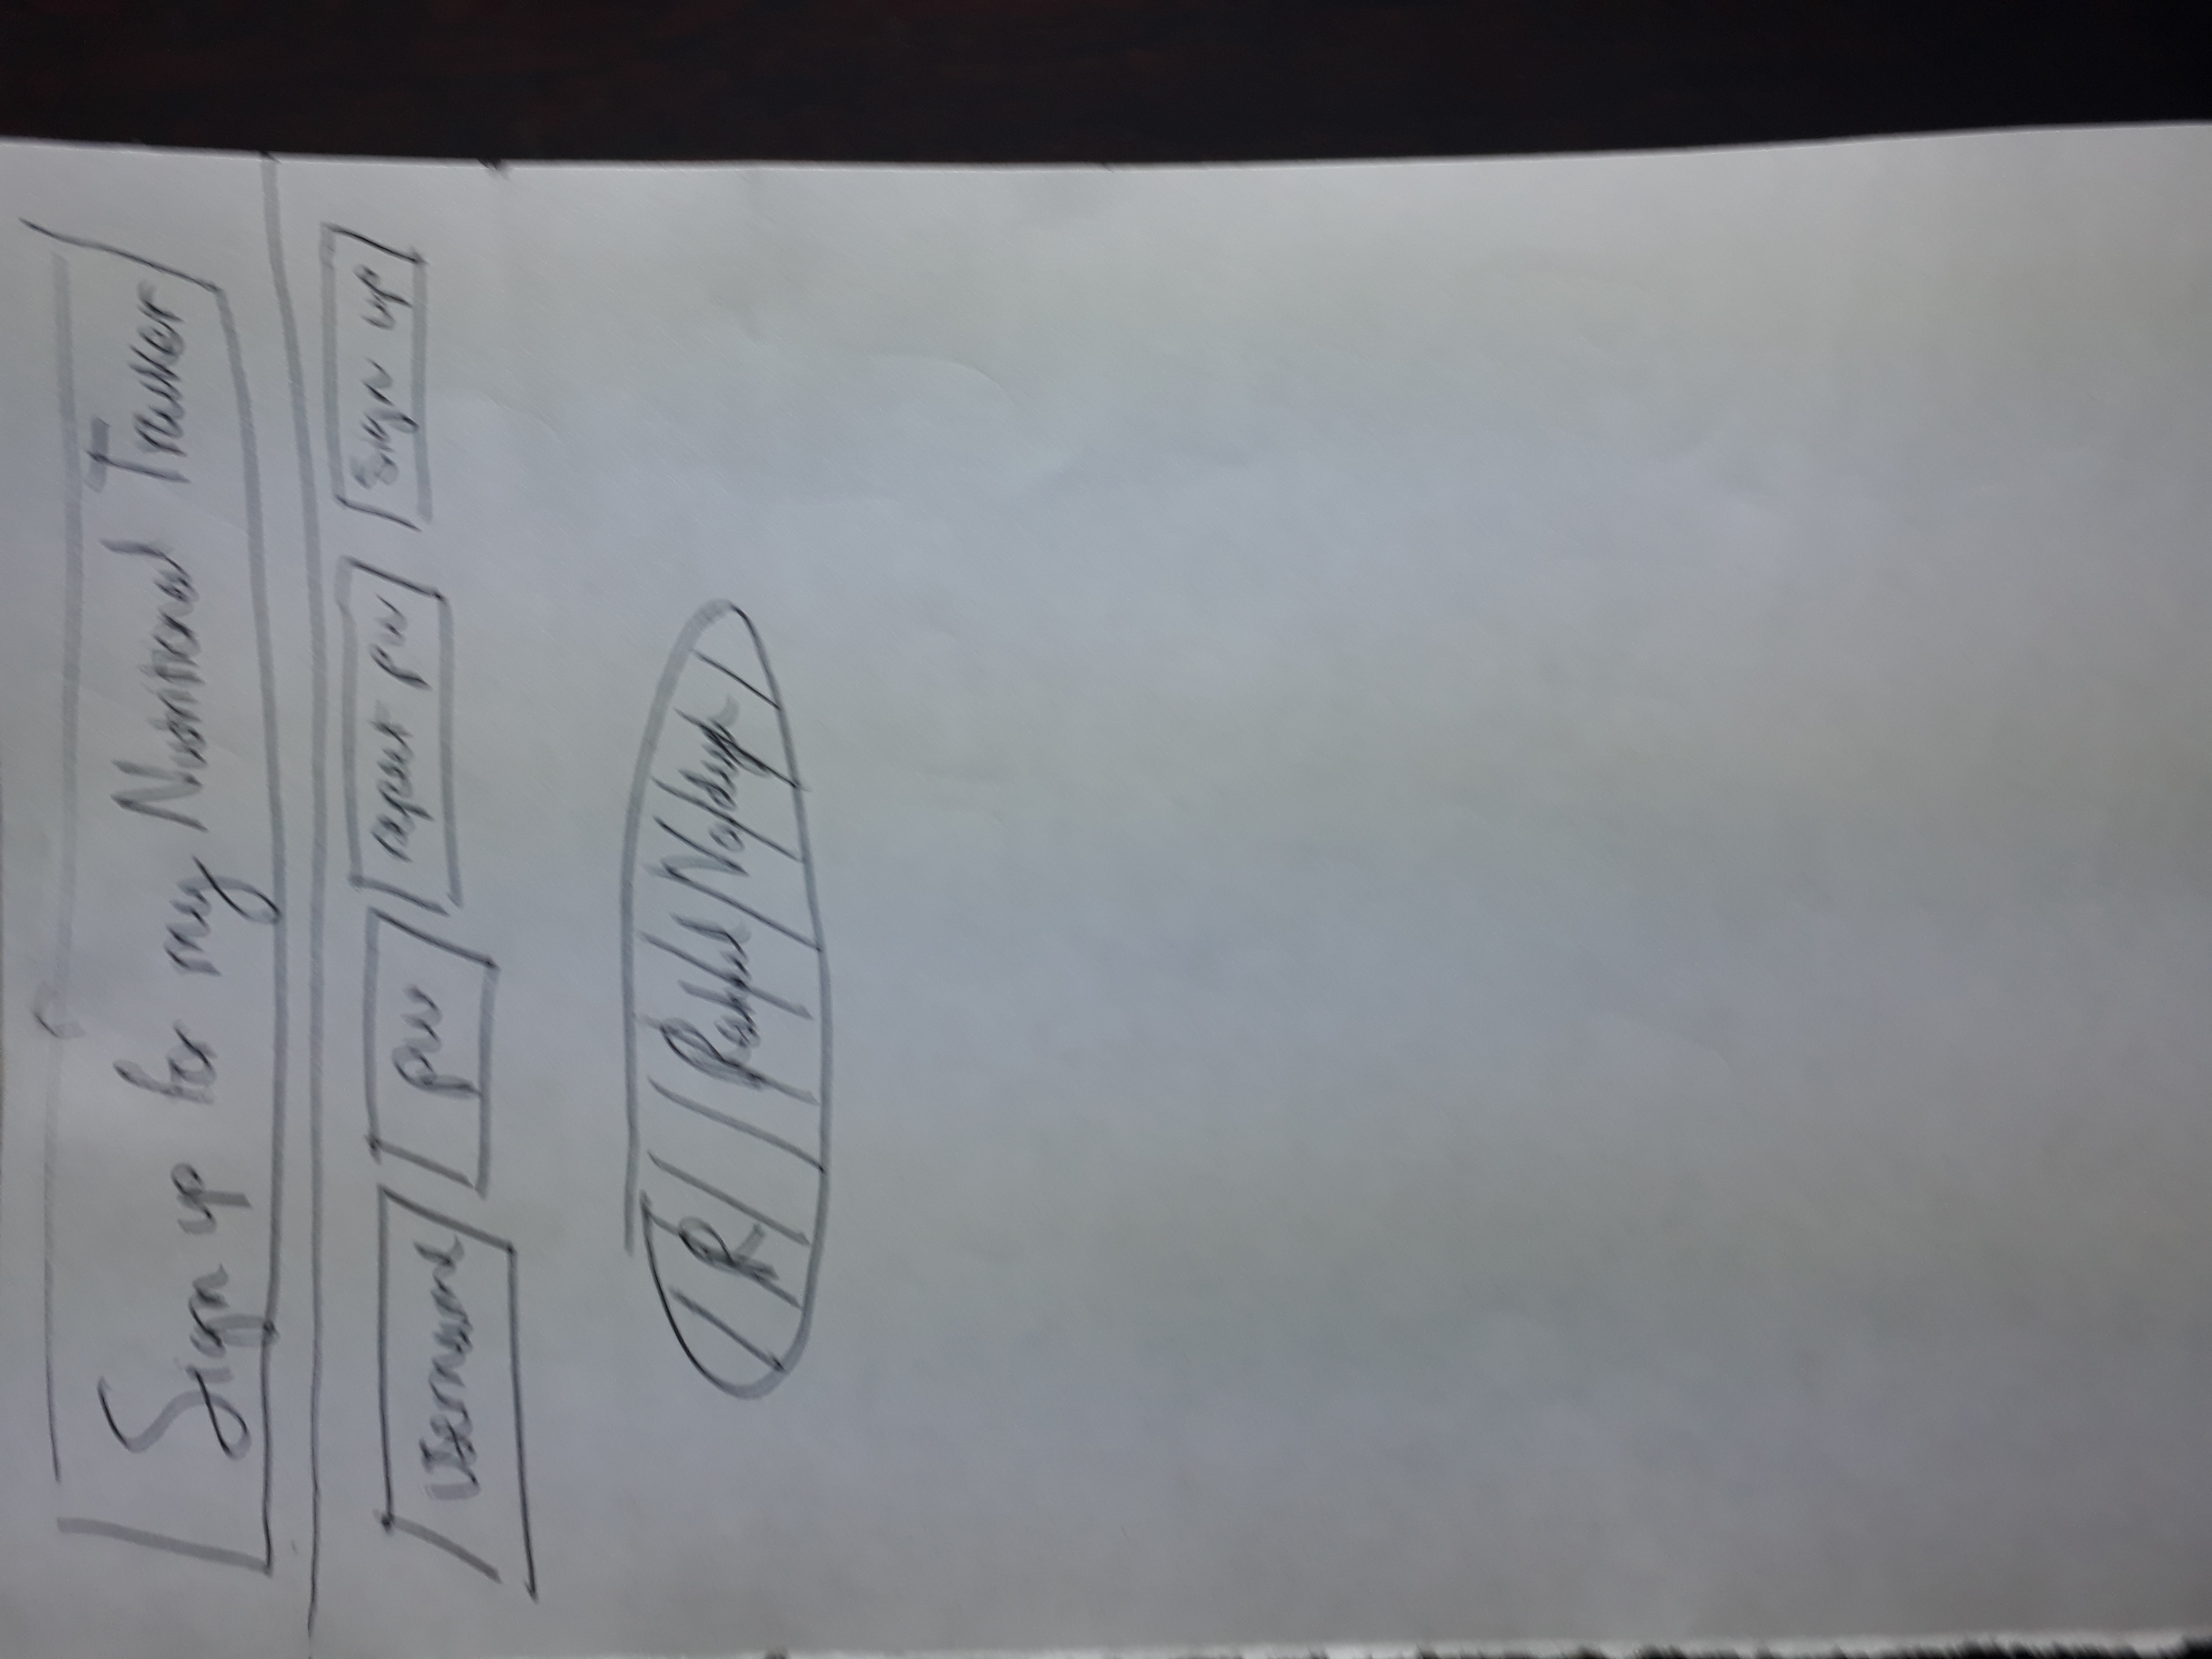 Sign up for my Nutritional Tracker
Username pw repeat pw sign up
R